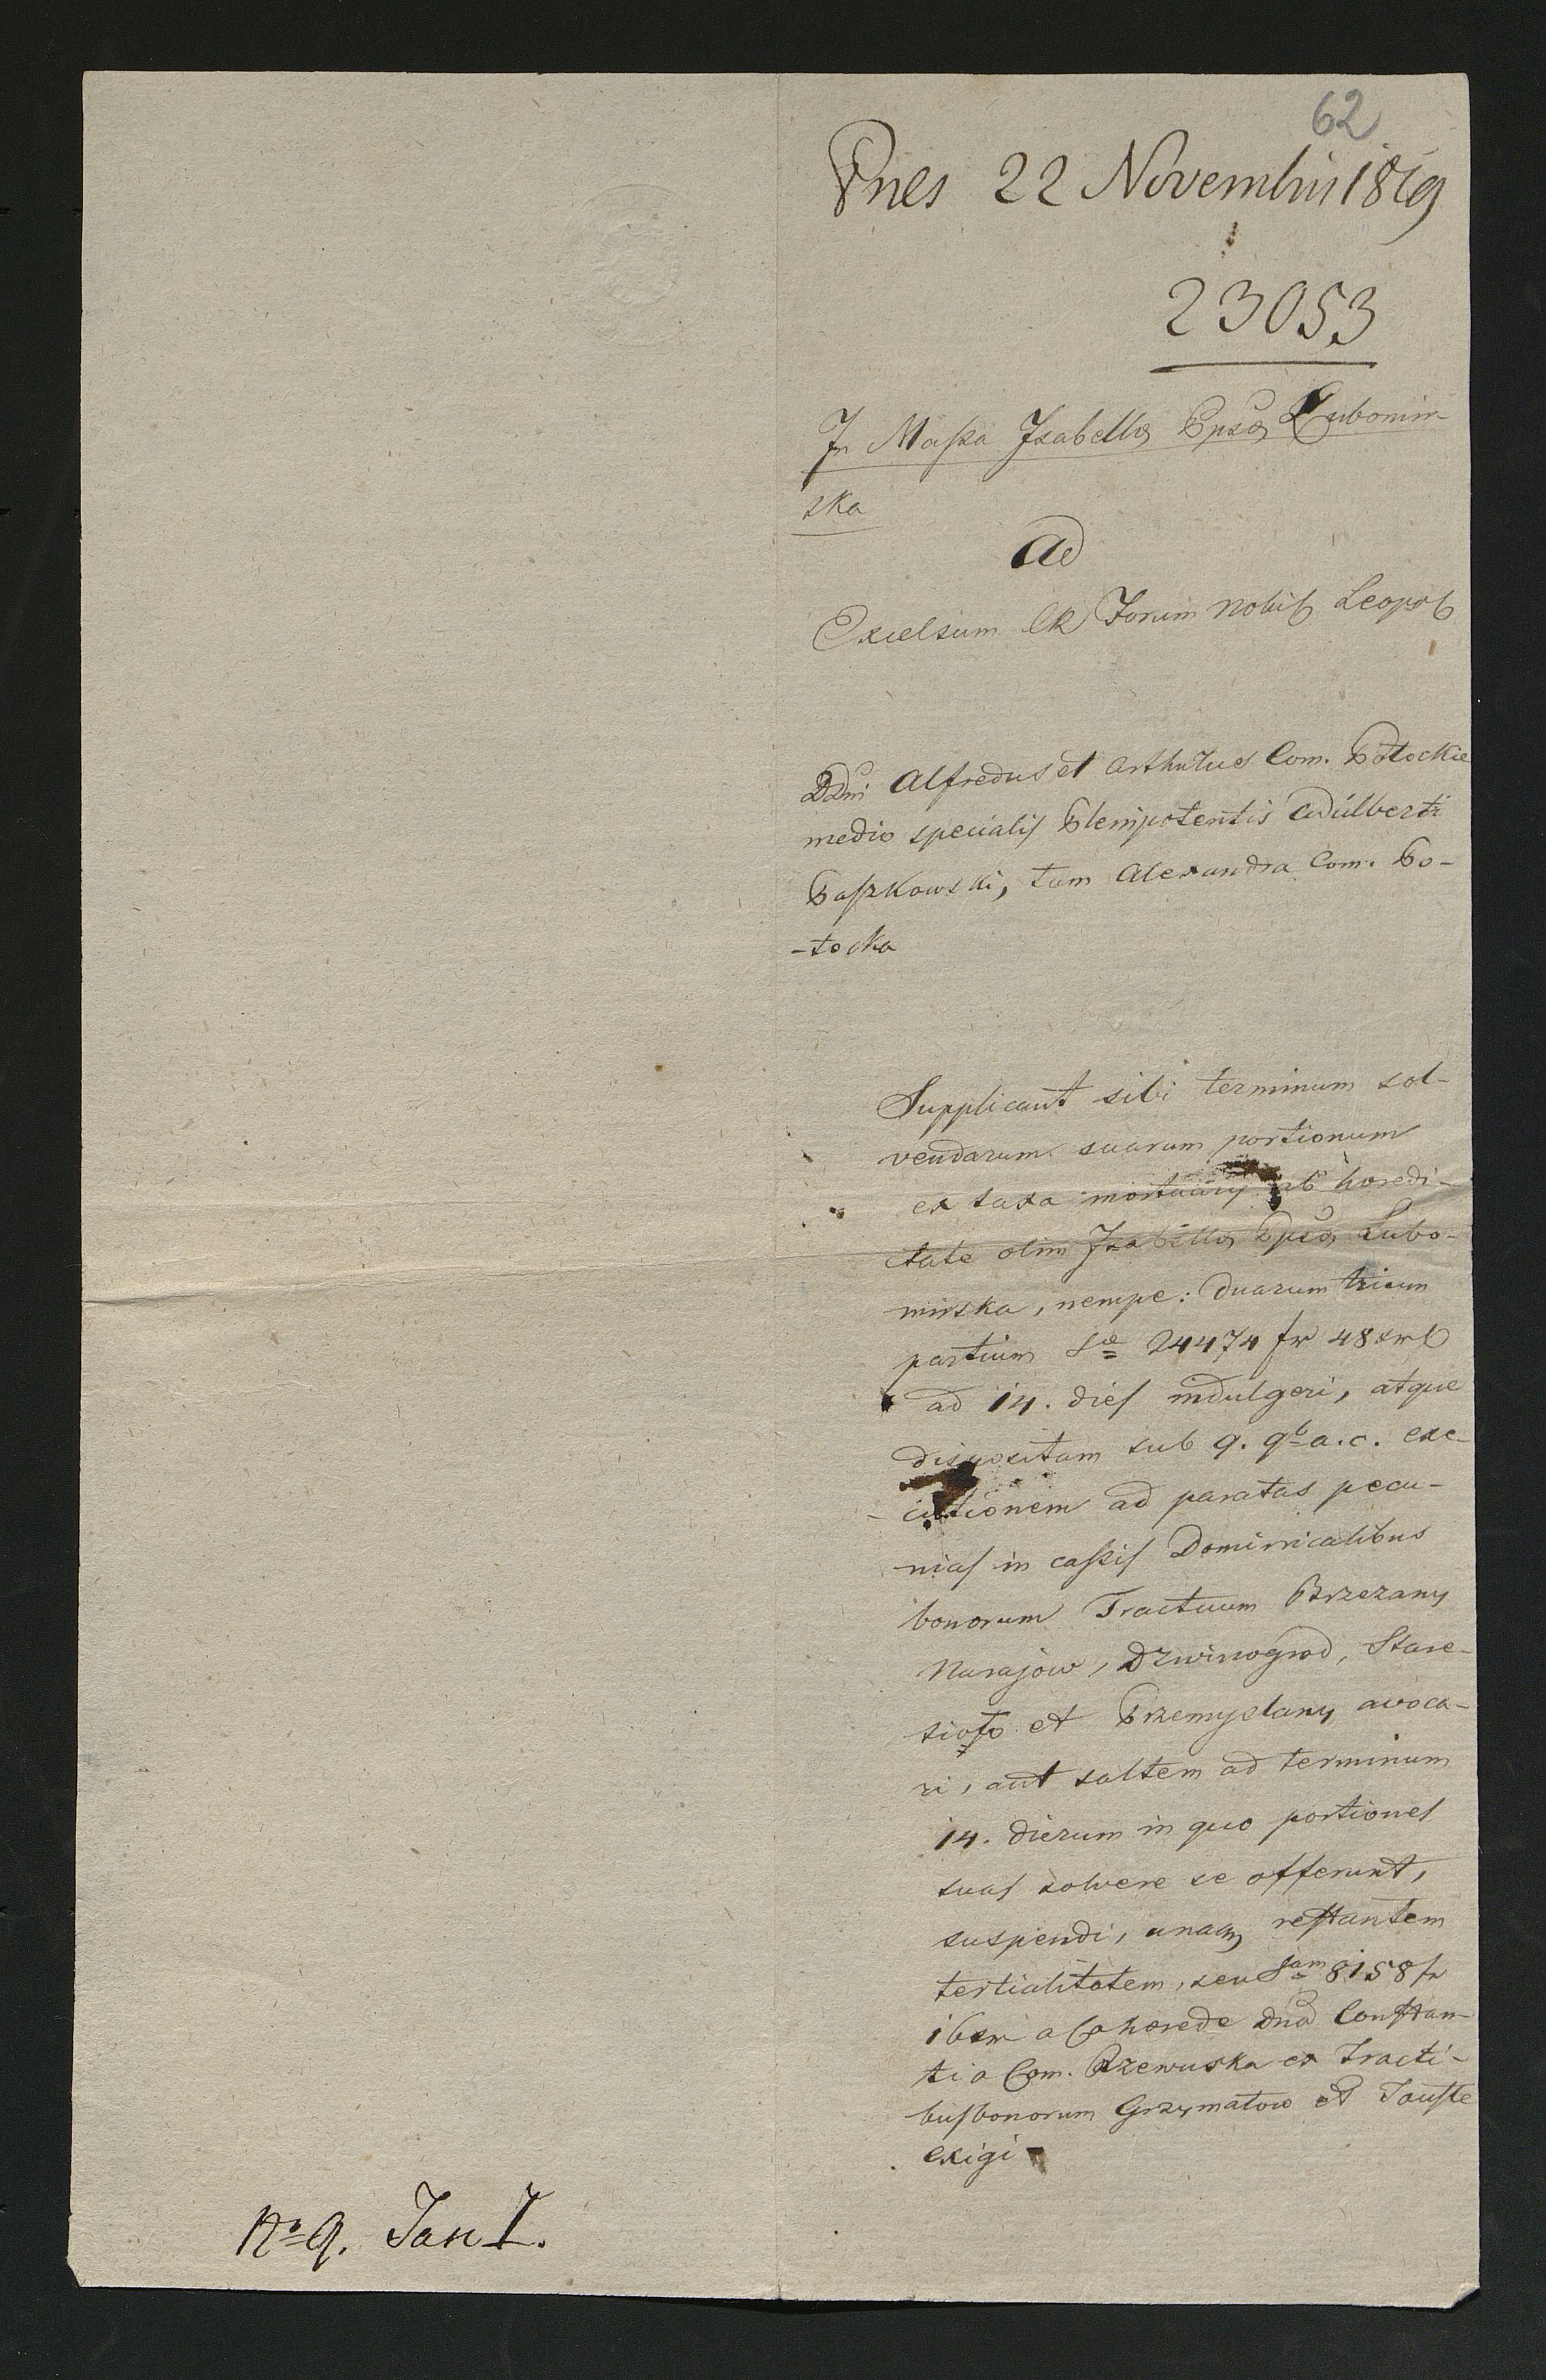 62
Pnes 22 Novembris 1819
23053
In Massa Isabellæ Cpssæ Lubomir-
ska
Ad
Excelsum CR Forum Nobil Leopol
DDni Alfredus et Arthurus Com. Potockie
medio specialis Plenipotentis Adalberti
Paszkowski, tum Alexandra Com. Po-
-tocka
Supplicant sibi terminum sol-
vendarum suarum portionum
ex taxa mortuarij ab hæredi-
tate olim Isabellæ Cpssæ Lubo-
mirska, nempe: duarum trium
partium Sæ 24474 fr 48 xr
ad 14. dies indulgeri, atque
dispositam sub 9. 9b a.c. exe-
-cutionem ad paratas pecu-
nias in cassis Dominicalibus
bonorum Tractuum Brzezany
Narajow, Dzwinogrod, Stare-
siolo et Przemyslany avoca-
ri, aut saltem ad terminum
14. dierum in quo portiones
suas solvere se offerunt,
suspendi, unam restantem
tertialitatem, seu Sam 8158 fr
16 xr a Cohærede Dna Constan-
tia Com. Rzewuska ex Tracti-
bus bonorum Grzymałow et Touste
exigi
No 9. Jan I.